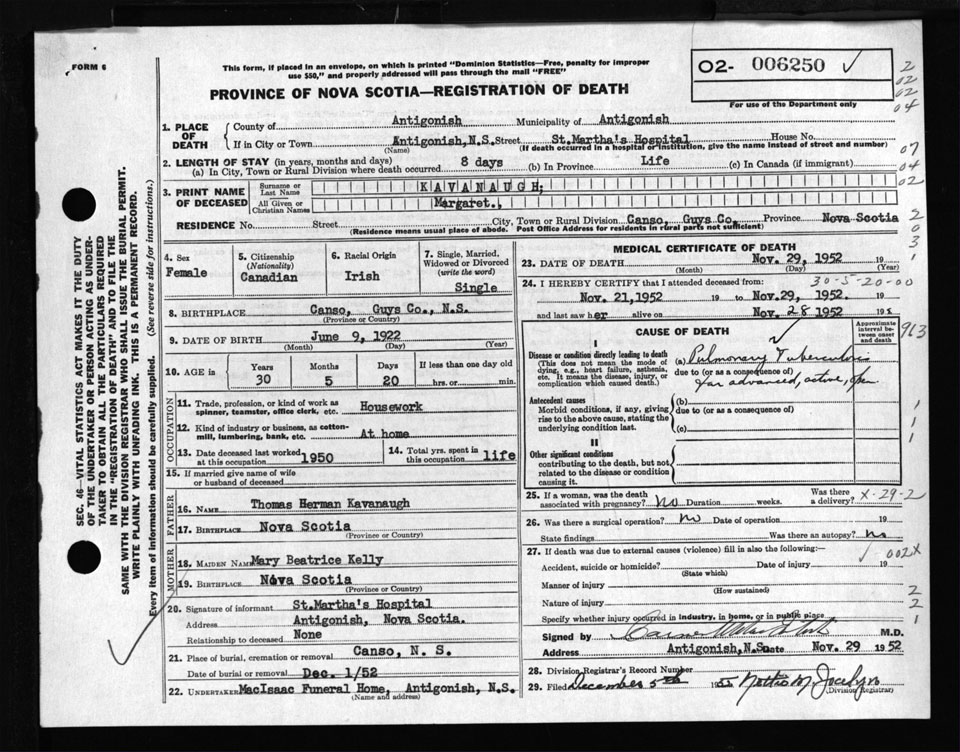 FORM 6
This form, if placed in an envelope, on which is printed "Dominion Statistics—Free, penalty for improper
use $50," and properly addressed will pass through the mail "FREE"
O2- 006250 ✓
For use of the Department only
PROVINCE OF NOVA SCOTIA—REGISTRATION OF DEATH
2
02
02
04
1. PLACE OF DEATH
County of Antigonish Municipality of Antigonish
If in City or Town Antigonish, N.S. Street St.Martha's Hospital House No.
(Name) (If death occurred in a hospital or institution, give the name instead of street and number)
07
2. LENGTH OF STAY (in years, months and days)
(a) In City, Town or Rural Division where death occurred 8 days (b) In Province Life (c) In Canada (if immigrant)
04
3. PRINT NAME OF DECEASED
Surname or Last Name KAVANAUGH;
02
All Given or Christian Names Margaret.,
RESIDENCE No. Street City, Town or Rural Division Canso, Guys Co, Province Nova Scotia
(Residence means usual place of abode. Post Office Address for residents in rural parts not sufficient)
2
0
3
4. Sex
Female
5. Citizenship
(Nationality)
Canadian
6. Racial Origin
Irish
7. Single, Married,
Widowed or Divorced
(write the word)
Single
8. BIRTHPLACE Canso, Guys Co., N.S.
(Province or Country)
9. DATE OF BIRTH June 9, 1922
(Month) (Day) (Year)
10. AGE in
Years Months Days If less than one day old
30 5 20 hrs. or min.
OCCUPATION
11. Trade, profession, or kind of work as
spinner, teamster, office clerk, etc. Housework
12. Kind of industry or business, as cotton-
mill, lumbering, bank, etc. At home
13. Date deceased last worked
at this occupation 1950
14. Total yrs. spent in
this occupation life
15. If married give name of wife
or husband of deceased
FATHER
16. NAME Thomas Herman Kavanaugh
17. BIRTHPLACE Nova Scotia
(Province or Country)
MOTHER
18. MAIDEN NAME Mary Beatrice Kelly
19. BIRTHPLACE Nova Scotia
(Province or Country)
20. Signature of informant St.Martha's Hospital
Address Antigonish, Nova Scotia.
Relationship to deceased None
21. Place of burial, cremation or removal Canso, N. S.
Date of burial or removal Dec. 1/52
22. UNDERTAKER MacIsaac Funeral Home, Antigonish, N.S.
(Name and address)
MEDICAL CERTIFICATE OF DEATH
23. DATE OF DEATH Nov. 29, 1952
(Month) (Day) (Year)
1
24. I HEREBY CERTIFY that I attended deceased from: 30-5-20-00
Nov. 21,1952 19 to Nov.29, 1952. 19
and last saw her alive on Nov. 28 1952 195
CAUSE OF DEATH
Approximate interval between onset and death
963
I
Disease or condition directly leading to death
(This does not mean the mode of
dying, e.g., heart failure, asthenia,
etc. It means the disease, injury, or
complication which caused death.)
(a) Pulmonary Tuberculosis
due to (or as a consequence of)
far advanced, active, open
Antecedent causes
Morbid conditions, if any, giving
rise to the above cause, stating the
underlying condition last.
(b)
due to (or as a consequence of)
(c)
1
1
1
II
Other significant conditions
contributing to the death, but not
related to the disease or condition
causing it.
25. If a woman, was the death
associated with pregnancy? no Duration weeks. Was there
a delivery? X-29-2
26. Was there a surgical operation? no Date of operation 19
State findings Was there an autopsy? no
27. If death was due to external causes (violence) fill in also the following:— 002X
Accident, suicide or homicide? Date of injury 19
(State which)
Manner of injury
(How sustained)
2
Nature of injury
2
Specify whether injury occurred in industry, in home, or in public place
1
Signed by M.D.
Address Antigonish, N.S. Date Nov. 29 1952
28. Division Registrar's Record Number
29. Filed December 5th 19 Nettie M. Jocelyn
(Division Registrar)
SEC. 46—VITAL STATISTICS ACT MAKES IT THE DUTY
OF THE UNDERTAKER OR PERSON ACTING AS UNDER-
TAKER TO OBTAIN ALL THE PARTICULARS REQUIRED
IN THE "REGISTRATION OF DEATH" AND TO FILE THE
SAME WITH THE DIVISION REGISTRAR WHO SHALL ISSUE THE BURIAL PERMIT.
WRITE PLAINLY WITH UNFADING INK. THIS IS A PERMANENT RECORD.
Every item of information should be carefully supplied. (See reverse side for instructions.)